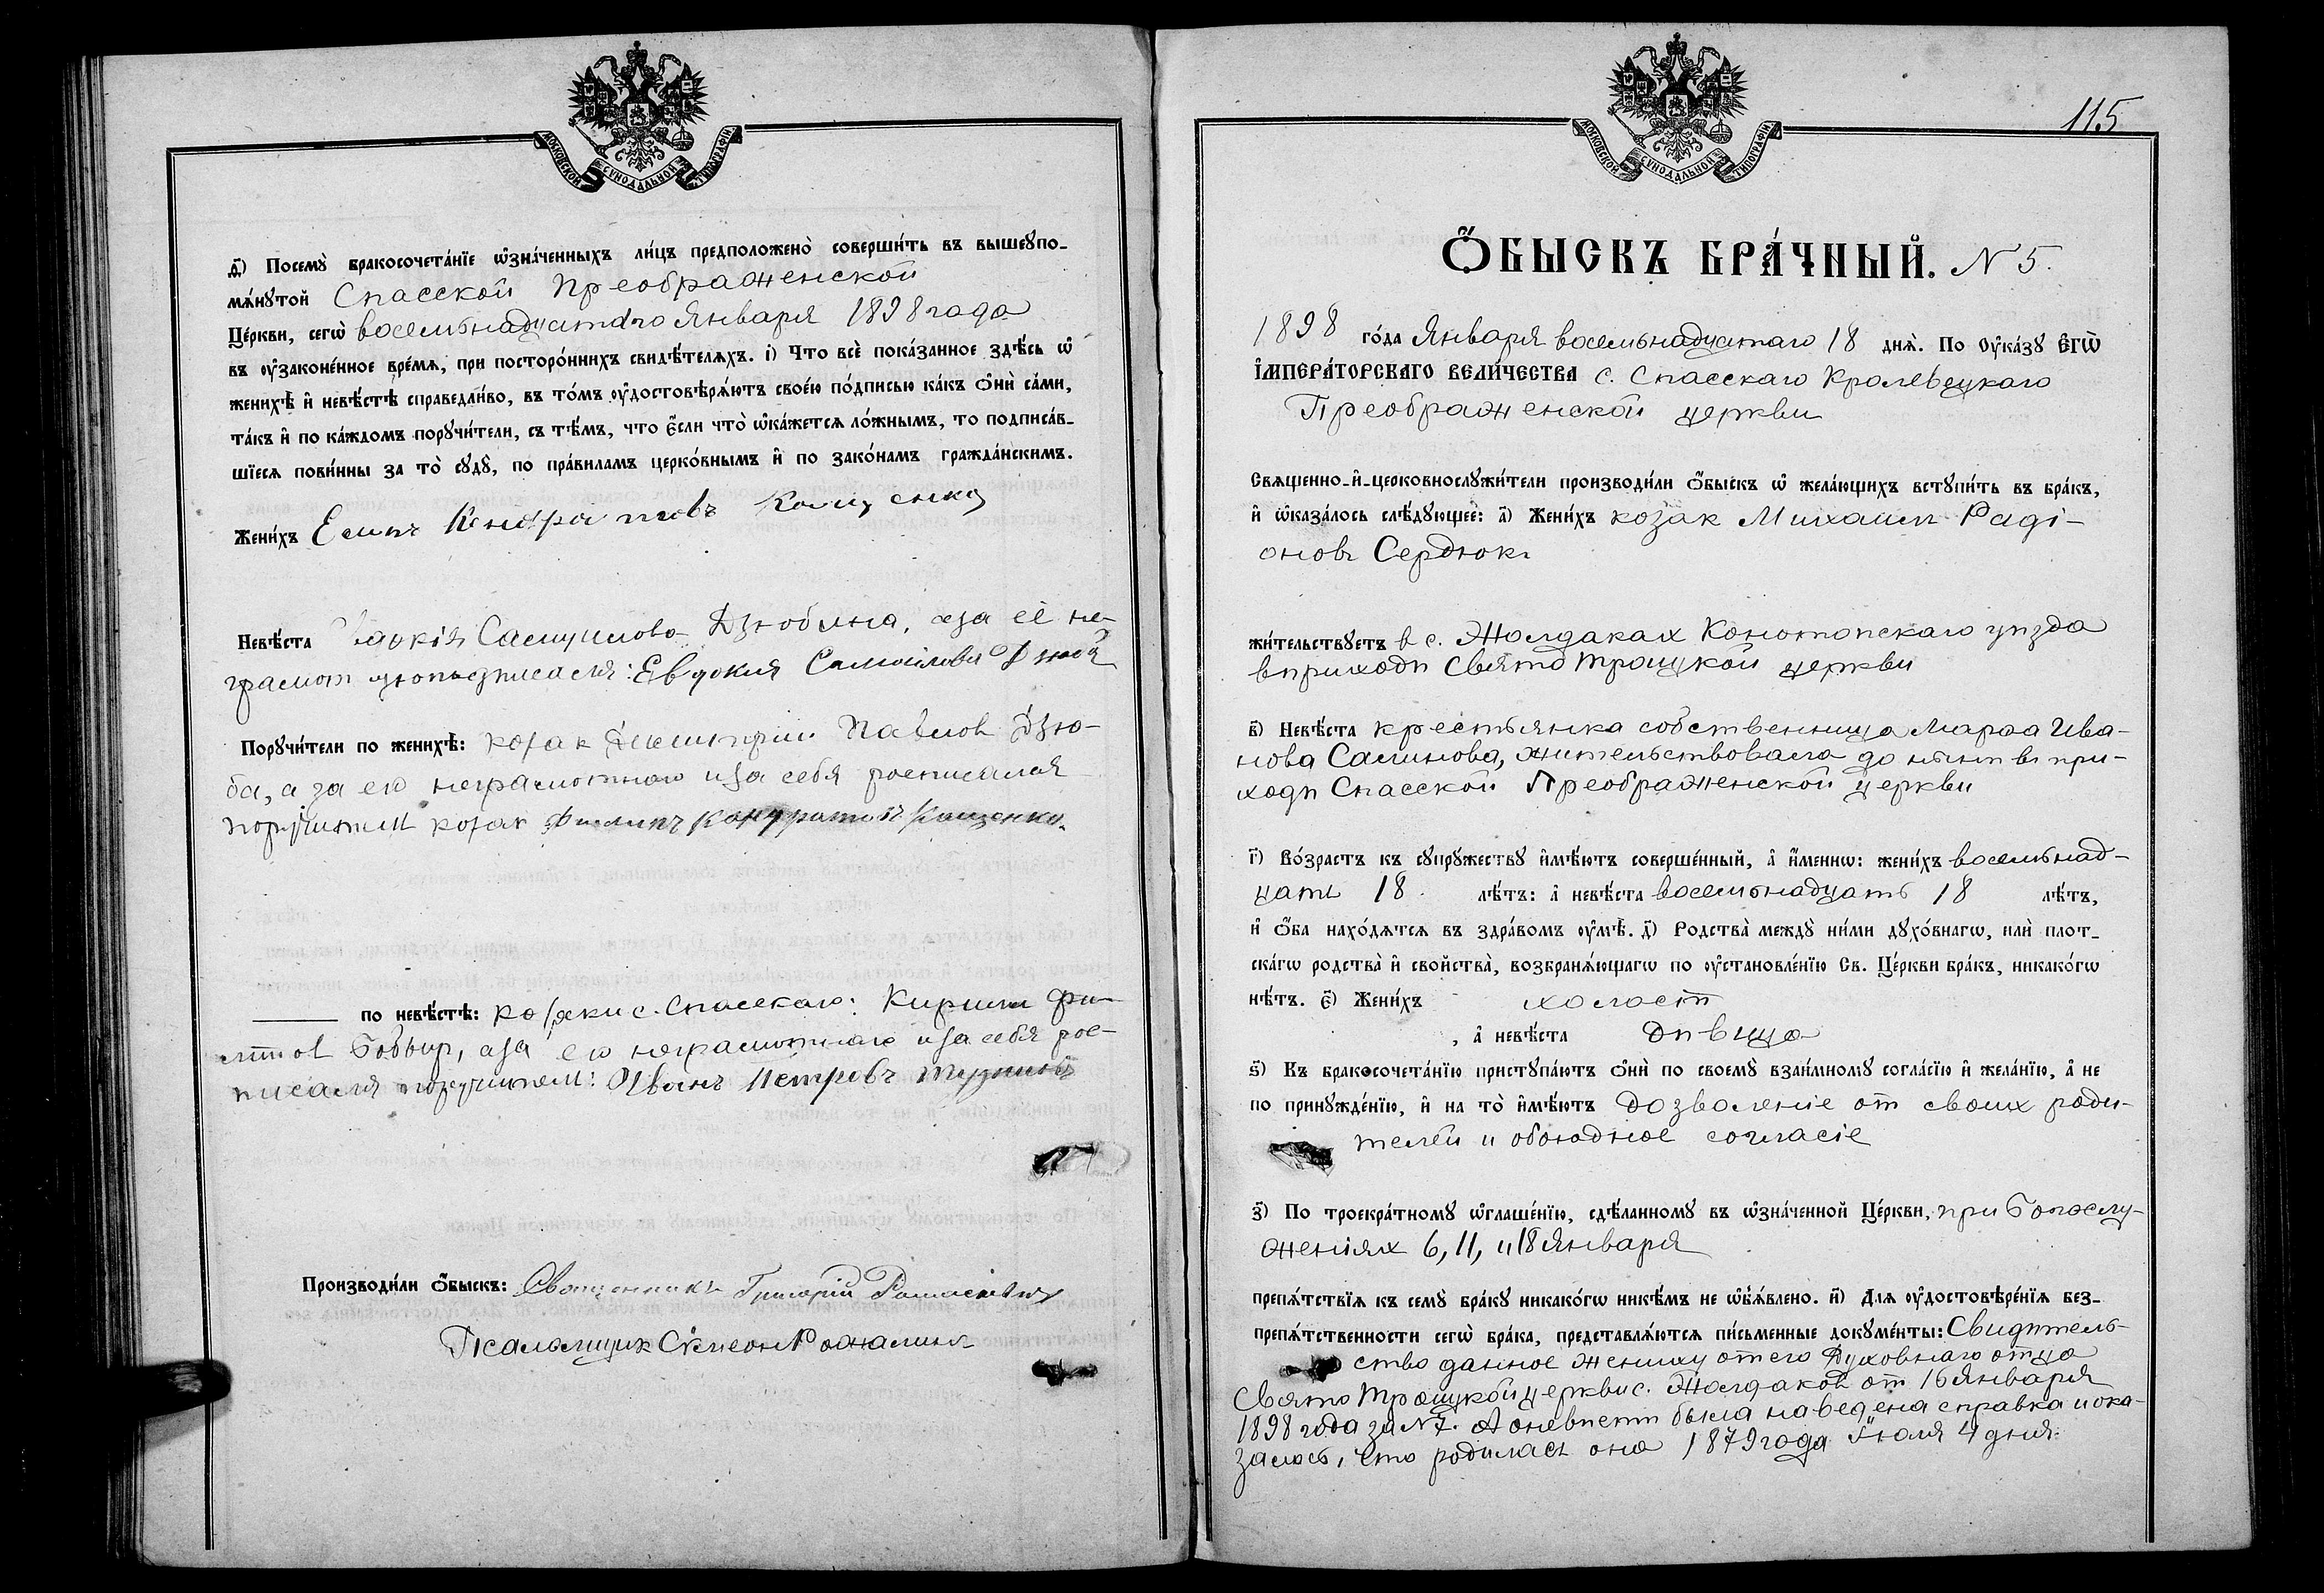 МОСКОВСКОЙ СѴНОДАЛЬНОЙ ТИПОГРАФІИ
ѳ҃) Посемꙋ̀ бракосочета́нїе ѡ҆зна́ченныхъ ли́цъ предположено̀ соверши́ть въ вышеꙋпо-
мѧ́нꙋтой Спасской Преображенской
Це́ркви, сегѡ̀ восемьнадцатаго Января 1898 года
въ ᲂу҆законе́нное вре́мѧ, при посторо́ннихъ свидѣ́телѧхъ. і҃) Что всѐ пока́занное здѣ́сь ѡ҆
женихѣ̀ и҆ невѣ́стѣ справедли́во, въ то́мъ ᲂу҆достовѣрѧ́ютъ свое́ю по́дписью ка́къ ѻ҆нѝ са́ми,
та́къ и҆ по ка́ждомъ порꙋчи́тели, съ тѣ́мъ, что є҆́сли что̀ ѡ҆ка́жетсѧ ло́жнымъ, то подписа́в-
шїесѧ пови́нны за то̀ сꙋдꙋ̀, по пра́виламъ церко́внымъ и҆ по зако́намъ гражда́нскимъ.
Жени́хъ Кондратовъ Кощенко
Невѣ́ста Самуилова Дзюбина, а за её не-
грамот подписался: Евдокия Самойлова Дзюба
Порꙋчи́тели по женихѣ̀: козак Димитрій Павлов Дзю-
ба, а за его неграмотного и за себя росписался
поручитель козак Филипъ Кондратовъ Кощенко.
по невѣ́стѣ: козаки с. Спасскаго: Кирилл Фи-
Бобыр, а за его неграмотнаго и за себя рос-
писался поручитель: Иванъ Петровъ
Производи́ли ѻ҆́быскъ: Священникъ Григорій
Псаломщик Симеон Рожалин
МОСКОВСКОЙ СѴНОДАЛЬНОЙ ТИПОГРАФІИ
115
Ѻ҆́БЫСКЪ БРА́ЧНЫЙ. N 5.
1898 го́да Января восемьнадцатаго 18 днѧ̀. По Оу҆ка́зꙋ Є҆гѡ̀
І҆МПЕРА́ТОРСКАГО ВЕЛИ́ЧЕСТВА с. Спасскаго Кролевецкаго
Преображенской церкви
Свѧщенно-и҆-церковнослꙋжи́тели производи́ли ѻ҆́быскъ ѡ҆ жела́ющихъ встꙋпи́ть въ бра́къ,
и҆ ѡ҆каза́лось слѣ́дꙋющее: а҃) Жени́хъ козак Михаил Раді-
онов Сердюк
жи́тельствꙋетъ в с. Жолдаках Конотопскаго уѣзда
в приходѣ Свято Троицкой церкви
в҃) Невѣ́ста крестьянка собственница Марфа Ива-
нова Салинова, жительствовала до нынѣ в при-
ходѣ Спасской Преображенской церкви
г҃) Во́зрастъ къ сꙋпрꙋ́жествꙋ и҆мѣ́ютъ соверше́нный, а҆ и҆́менно: жени́хъ восемьнад-
цать 18 лѣ́тъ: а҆ невѣ́ста восемьнадцать 18 лѣ́тъ,
и҆ ѻ҆́ба нахо́дѧтсѧ въ здра́вомъ ᲂу҆мѣ̀. д҃) Родства̀ междꙋ̀ ни́ми дꙋхо́внагѡ, илѝ плот-
ска́гѡ родства̀ и҆ свойства̀, возбранѧ́ющагѡ по ᲂу҆становле́нїю Св. Це́ркви бра́къ, никако́гѡ
нѣ́тъ. є҃) Жени́хъ холост
, а҆ невѣ́ста дѣвица
ѕ҃) Къ бракосочета́нїю пристꙋпа́ютъ ѻ҆нѝ по своемꙋ̀ взаи́мномꙋ согла́сїю и҆ жела́нїю, а҆ не
по принꙋжде́нїю, и҆ на то̀ и҆мѣ́ютъ дозволеніе от своих роди-
телей и обоюдное согласіе
з҃) По троекра́тномꙋ ѡ҆глаше́нїю, сдѣ́ланномꙋ въ ѡ҆зна́ченной Це́ркви, при Богослу-
женіях 6, 11, и 18 Января
препѧ́тствїѧ къ семꙋ̀ бра́кꙋ никако́гѡ никѣ́мъ не ѡ҆б̾ѧ́влено. и҃) Длѧ ᲂу҆достовѣре́нїѧ без-
препѧ́тственности сегѡ̀ бра́ка, представлѧ́ютсѧ пи́сьменные докꙋме́нты: Свидѣтель-
ство данное жениху от его Духовнаго отца
Свято Троицкой церкви с. Жолдаков от 16 Января
1898 года за N 7. А о невѣстѣ была наведена справка и ока-
залось, что родилась она 1879 года Іюля 4 дня.